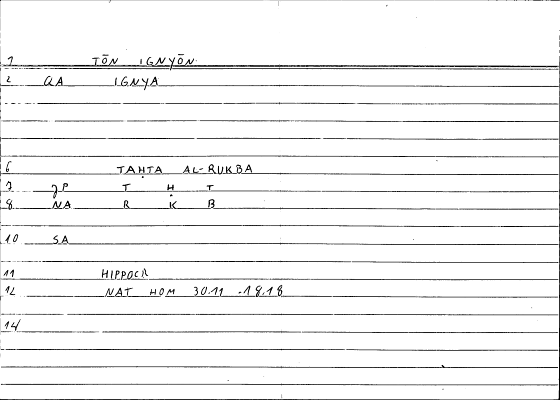 1 TŌN IGNYŌN
2 QA IGNYA
6 TAḤTA AL-RUKBA
7 JP T Ḥ T
8 NA R K B
10 SA
11 HIPPOCR
12 NAT HOM 30.11 - 18.18
14